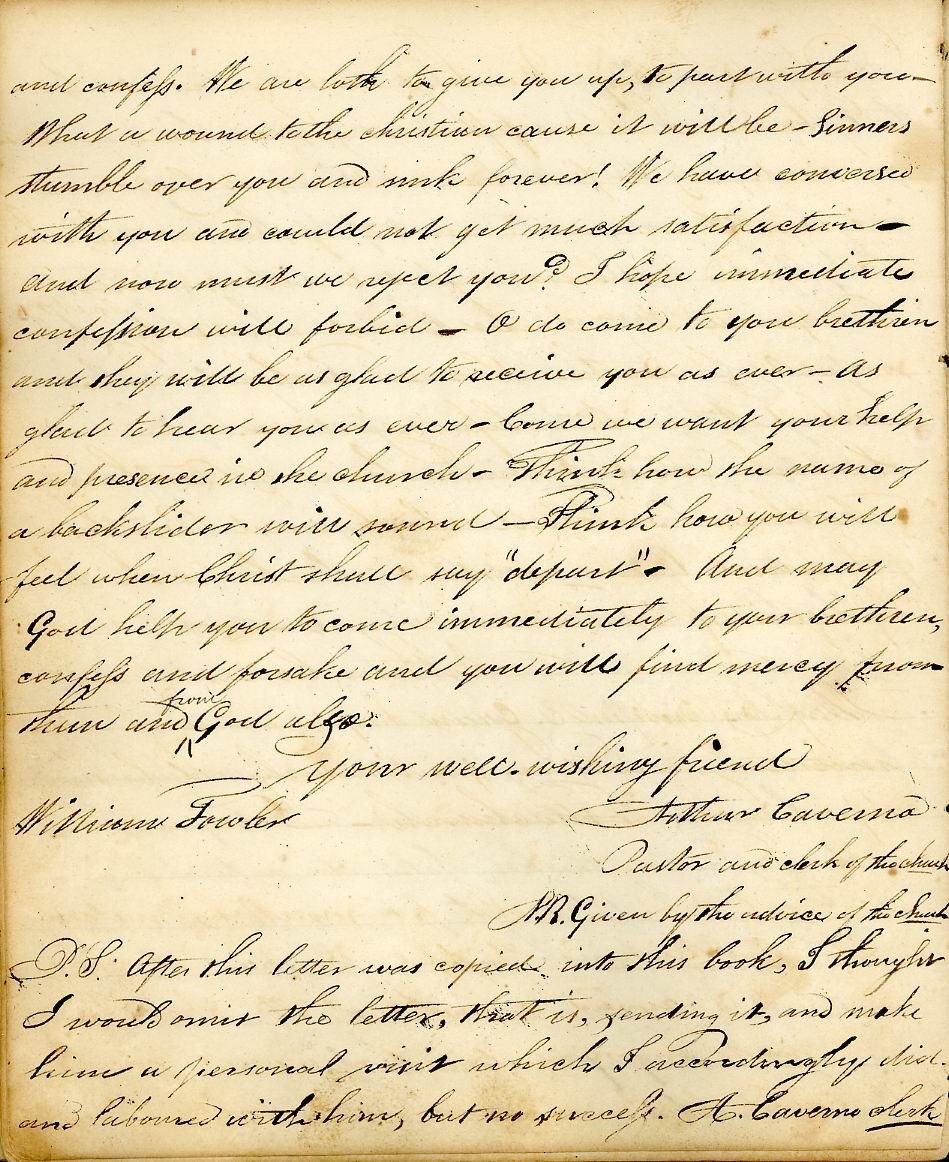 and confess. We are loth to give you up, to part with you—
What a wound to the christian cause it will be – Sinners
stumble over you and sink forever! We have conversed
with you and could not get much satisfaction –
And now must we reject you? I hope immediate
confession will forbid – O do come to you brethren
and they will be as glad to receive you as ever – As
glad to hear you as ever – Come we want your help
and presence in the church – Think how the name of
a backslider will sound – Think how you will
feel when Christ shall say "depart" – And may
God help you to come immediately to your brethren,
confess and forsake and you will find mercy from
them and from God also.
Your well-wishing friend
William Fowler
Arthur Caverno
Pastor and clerk of the church
N.B. Given by the advice of the church
P.S. After this letter was copied into this book, I thought
I would omit the letter, that is, sending it, and make
him a personal visit which I accordingly did.
and laboured with him, but no success. A. Caverno clerk